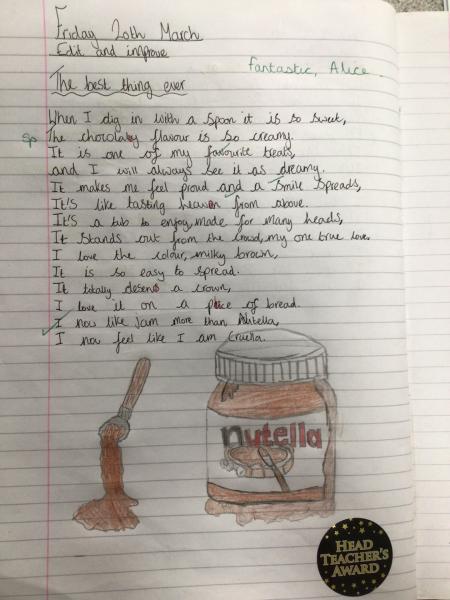 Friday 20th March
Edit and improve
Fantastic, Alice.
The best thing ever
When I dig in with a spoon it is so sweet,
Sp The chocolaty flavour is so creamy.
It is one of my favourite treats,
and I will always see it as dreamy.
It makes me feel proud and a smile spreads,
It's like tasting heaven from above.
It's a tub to enjoy, made for many heads,
It stands out from the crowd, my one true love.
I love the colour, milky brown,
It is so easy to spread.
It totally deserves a crown,
I love it on a piece of bread.
I now like jam more than Nutella,
I now feel like I am Cruella.
nutella
HEAD
TEACHER'S
AWARD